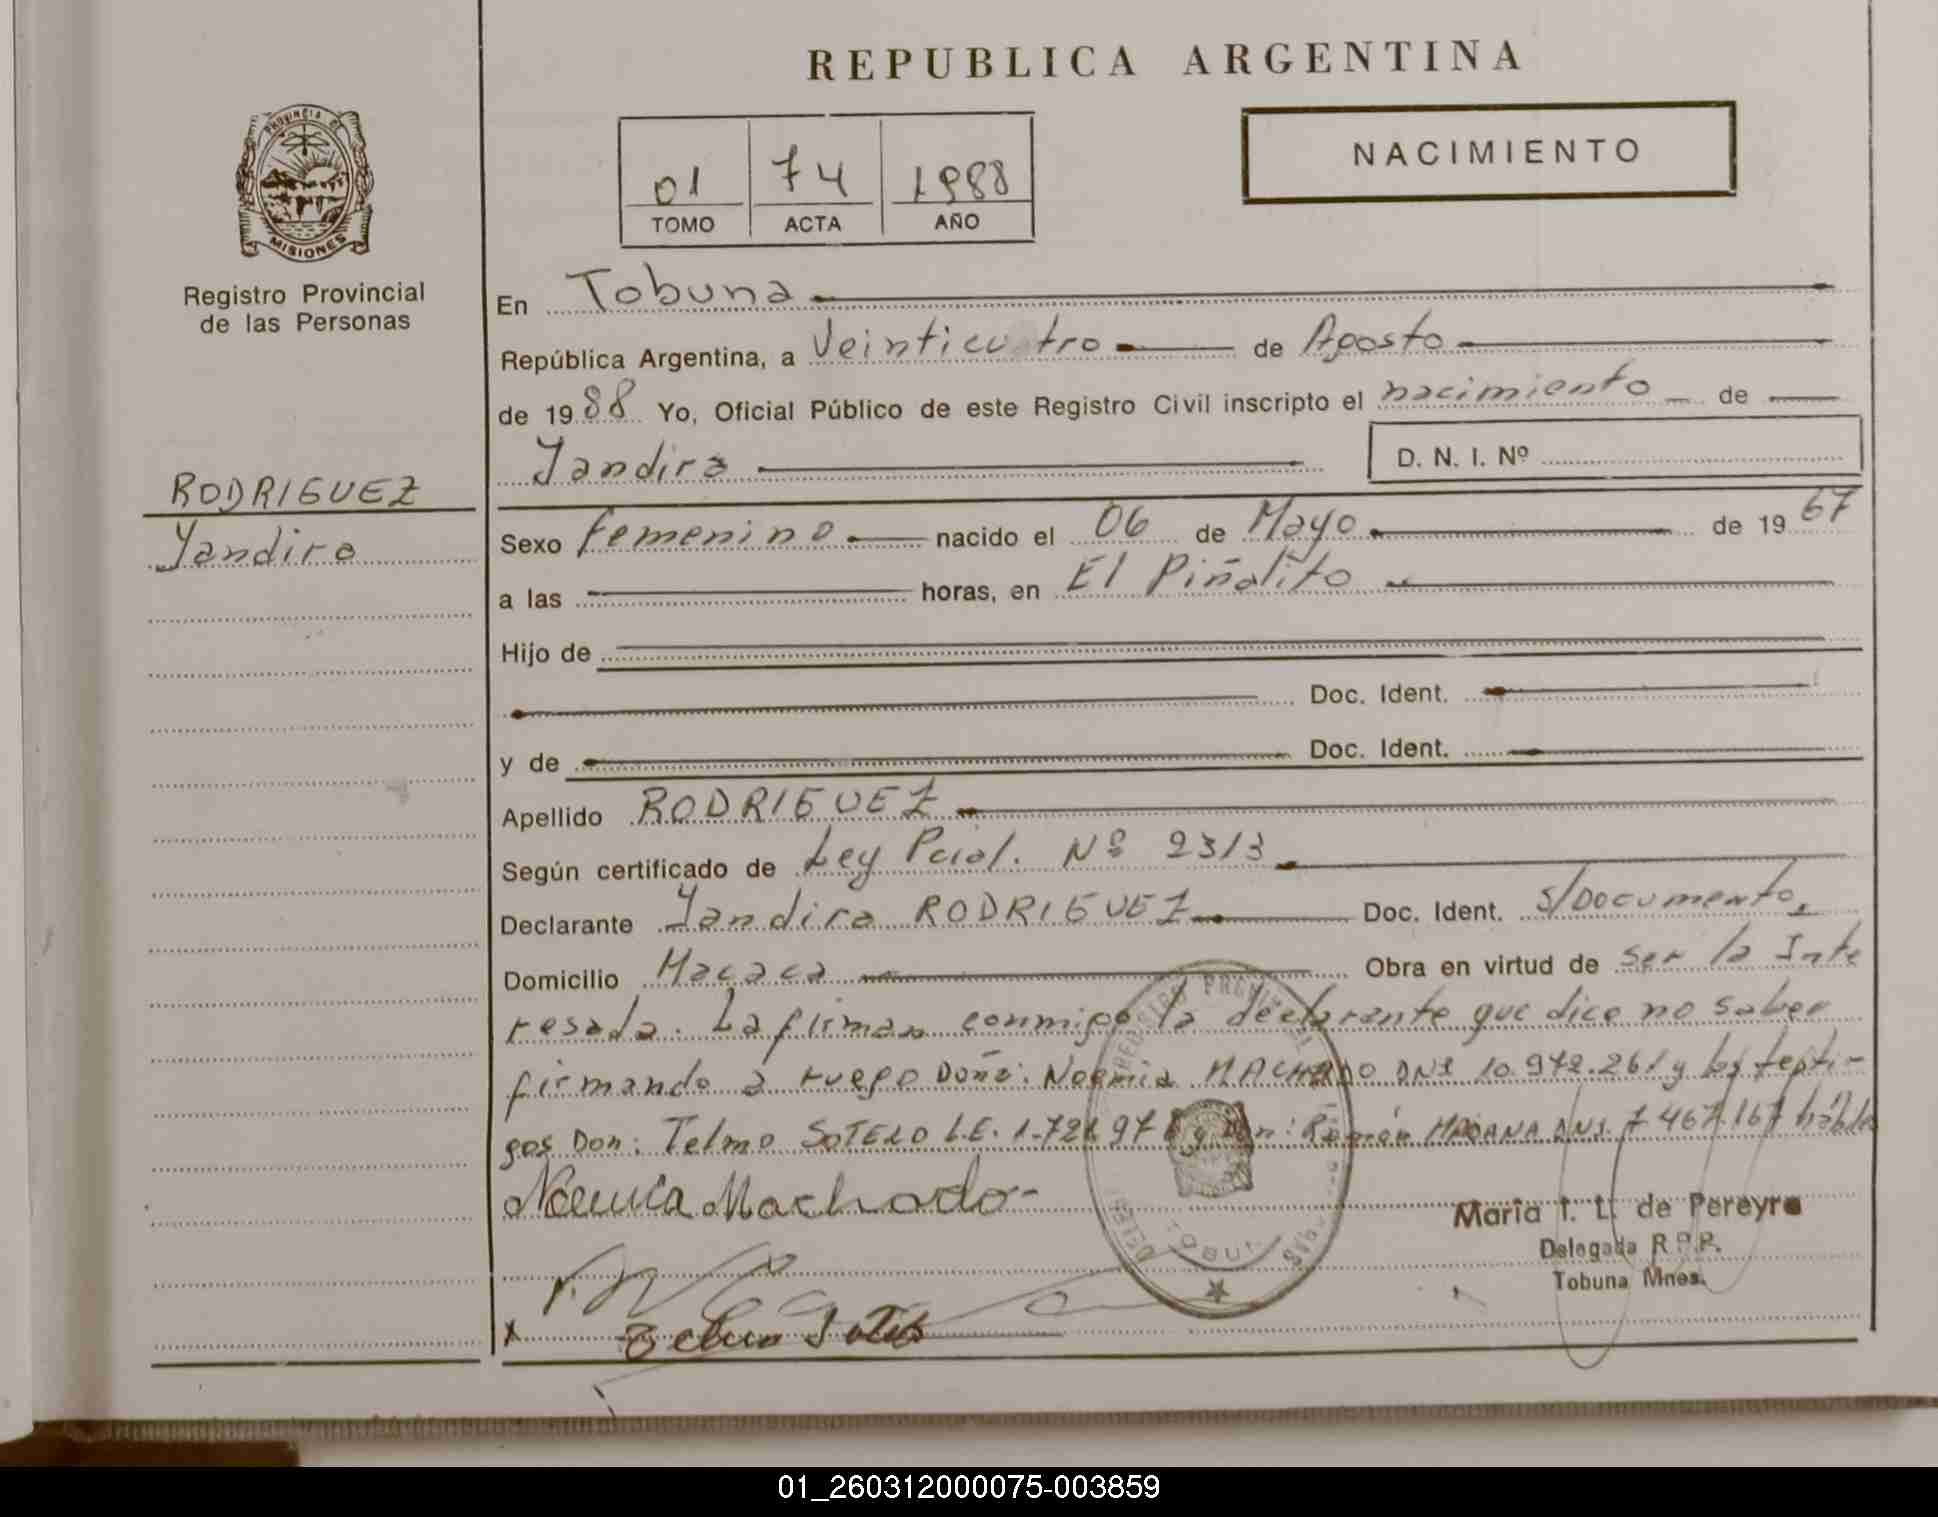 REPUBLICA ARGENTINA
PROVINCIA DE MISIONES
Registro Provincial
de las Personas
01 74 1988
TOMO ACTA AÑO
NACIMIENTO
En Tobuna
República Argentina, a Veinticuatro de Agosto
de 1988 Yo, Oficial Público de este Registro Civil inscripto el nacimiento de
Yandira D. N. I. Nº
RODRIGUEZ
Yandira
Sexo femenino nacido el 06 de Mayo de 1967
a las horas, en El Piñalito
Hijo de
Doc. Ident.
y de Doc. Ident.
Apellido RODRIGUEZ
Según certificado de Ley Pcial. Nº 2313
Declarante Yandira RODRIGUEZ Doc. Ident. S/Documento,
Domicilio Macaca Obra en virtud de ser la Inte
resada. La firman conmigo la declarante que dice no saber
firmando a ruego Doña: Noemia MACHADO DNI 10.972.261 y los testi-
gos Don: Telmo SOTELO L.E. 1.721.97 y Don: Ramón DNI. 7.467.167 hábiles
Noemia Machado-
Maria T. L. de Pereyra
Delegada R.P.P.
Tobuna Mnes.
x Telmo Sotelo
01_260312000075-003859